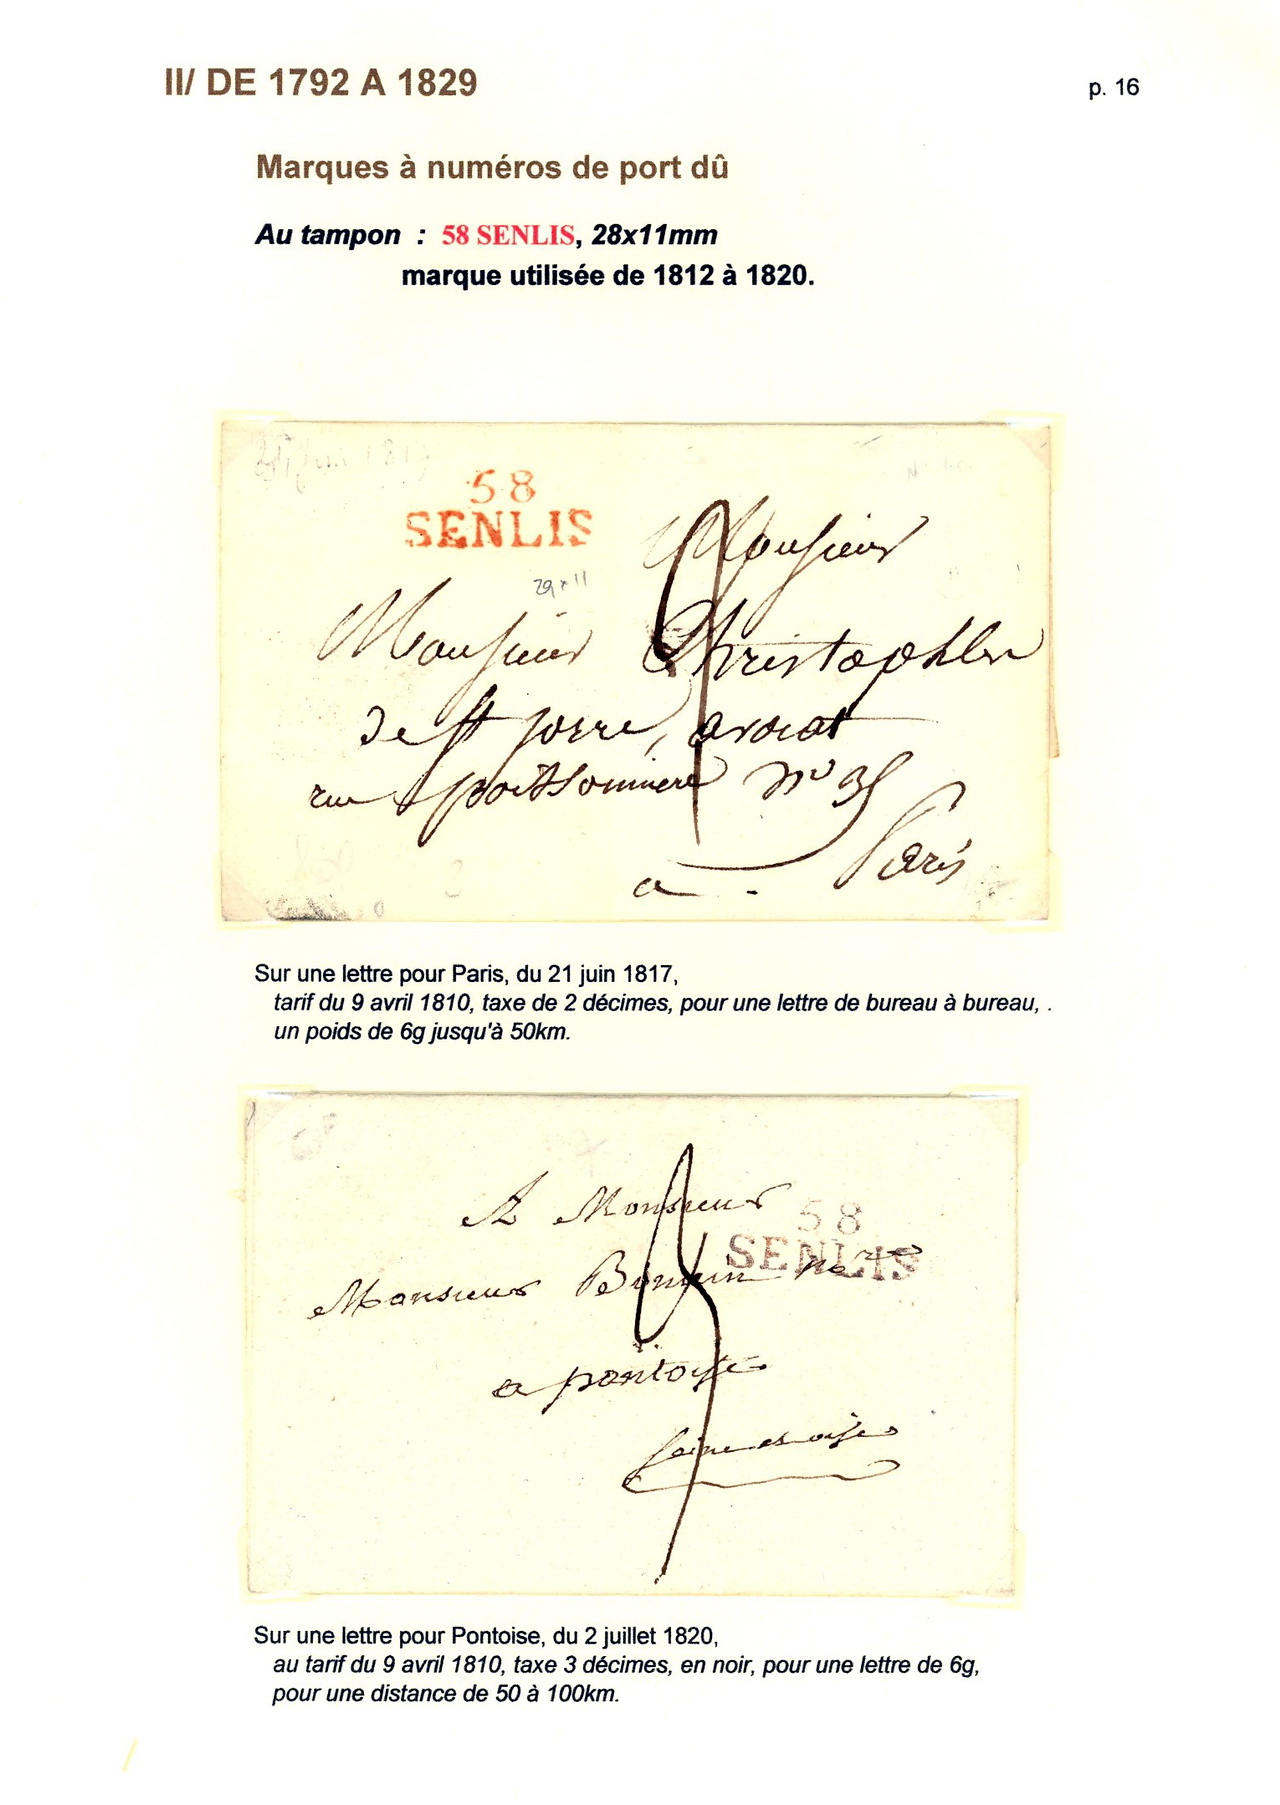 II/ DE 1792 A 1829
p. 16
Marques à numéros de port dû
Au tampon : 58 SENLIS, 28x11mm
marque utilisée de 1812 à 1820.
21 juin 1817
58
SENLIS
29x11
Monsieur
Monsieur
de St jorre, avocat
rue poissonniere n° 35
a Paris
Sur une lettre pour Paris, du 21 juin 1817,
tarif du 9 avril 1810, taxe de 2 décimes, pour une lettre de bureau à bureau, .
un poids de 6g jusqu'à 50km.
A Monsieur
58
SENLIS
Monsieur
a pontoise
seine et oise
Sur une lettre pour Pontoise, du 2 juillet 1820,
au tarif du 9 avril 1810, taxe 3 décimes, en noir, pour une lettre de 6g,
pour une distance de 50 à 100km.